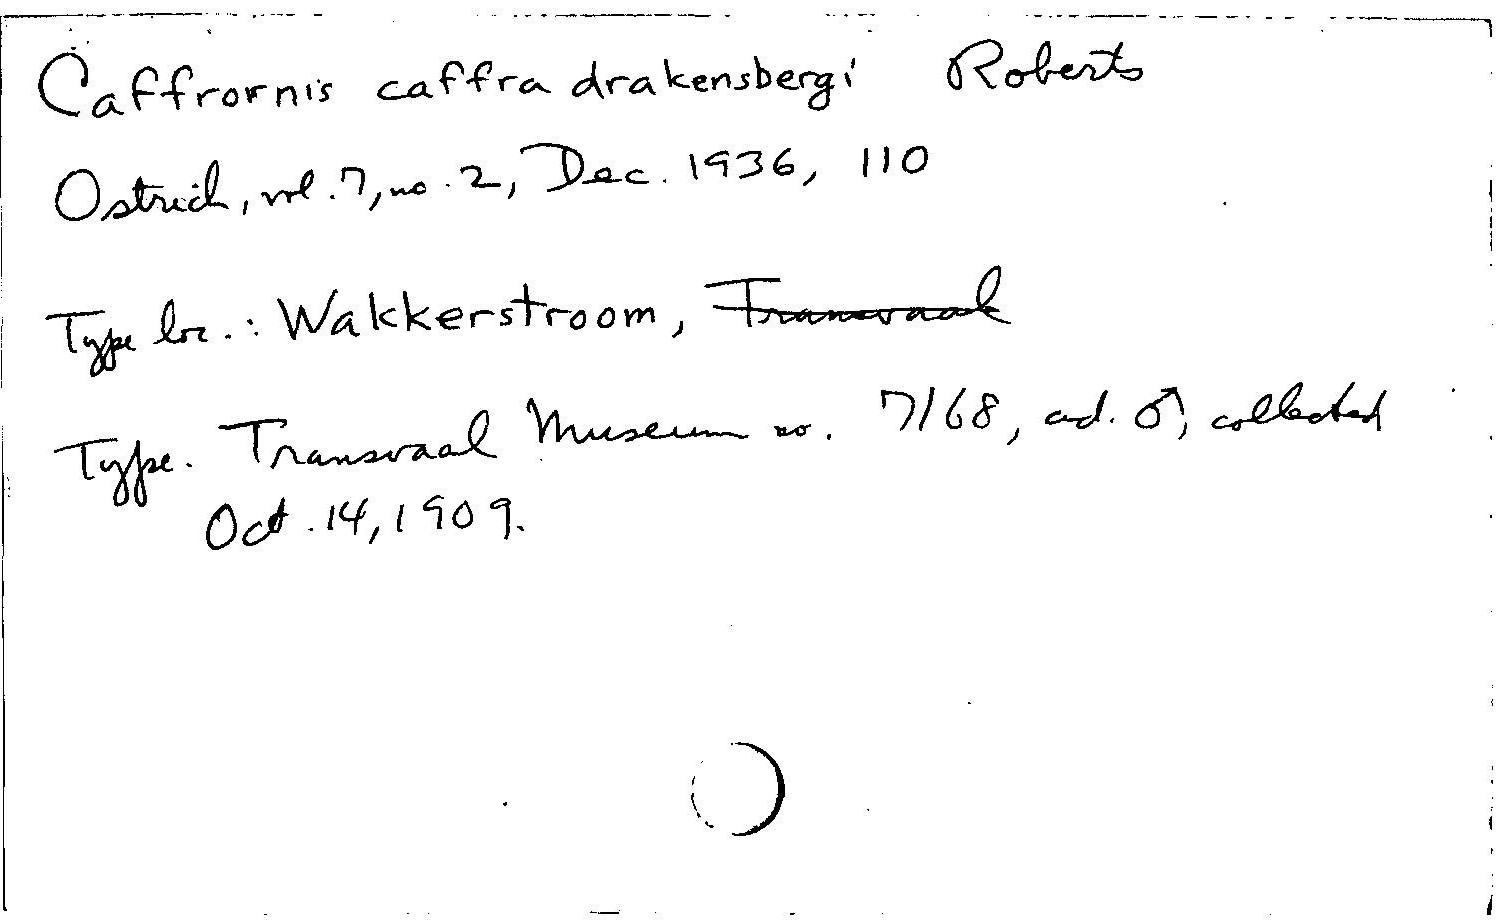 Caffrornis caffra drakensbergi Roberts
Ostrich, vol. 7, no. 2, Dec. 1936, 110
Type loc.: Wakkerstroom, Transvaal
Type. Transvaal Museum no. 7168, ad. ♂, collected
Oct. 14, 1909.